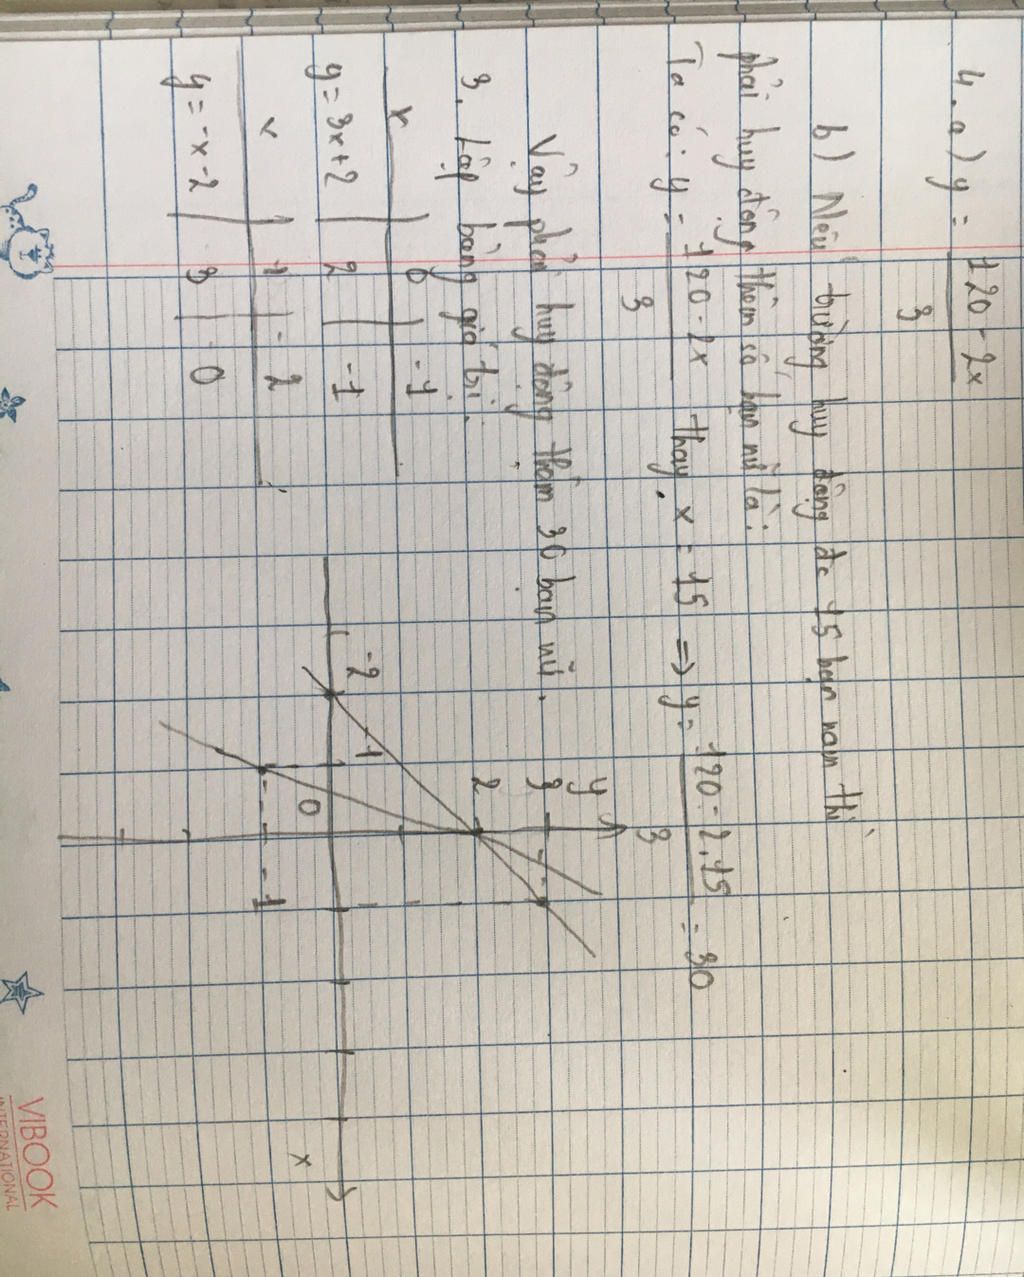 4. a) y = 120 - 2x / 3
b) Nếu trường huy động đc 15 bạn nam thì
phải huy động thêm số bạn nữ là:
Ta có: y = 120 - 2x / 3 thay x = 15 => y = 120 - 2.15 / 3 = 30
Vậy phải huy động thêm 30 bạn nữ.
3. Lập bảng giá trị.
x 0 -1
y = 3x+2 2 -1
x 1 -2
y = -x-2 3 0
y
3
2
-2 1
0
x
-1
VIBOOK
INTERNATIONAL